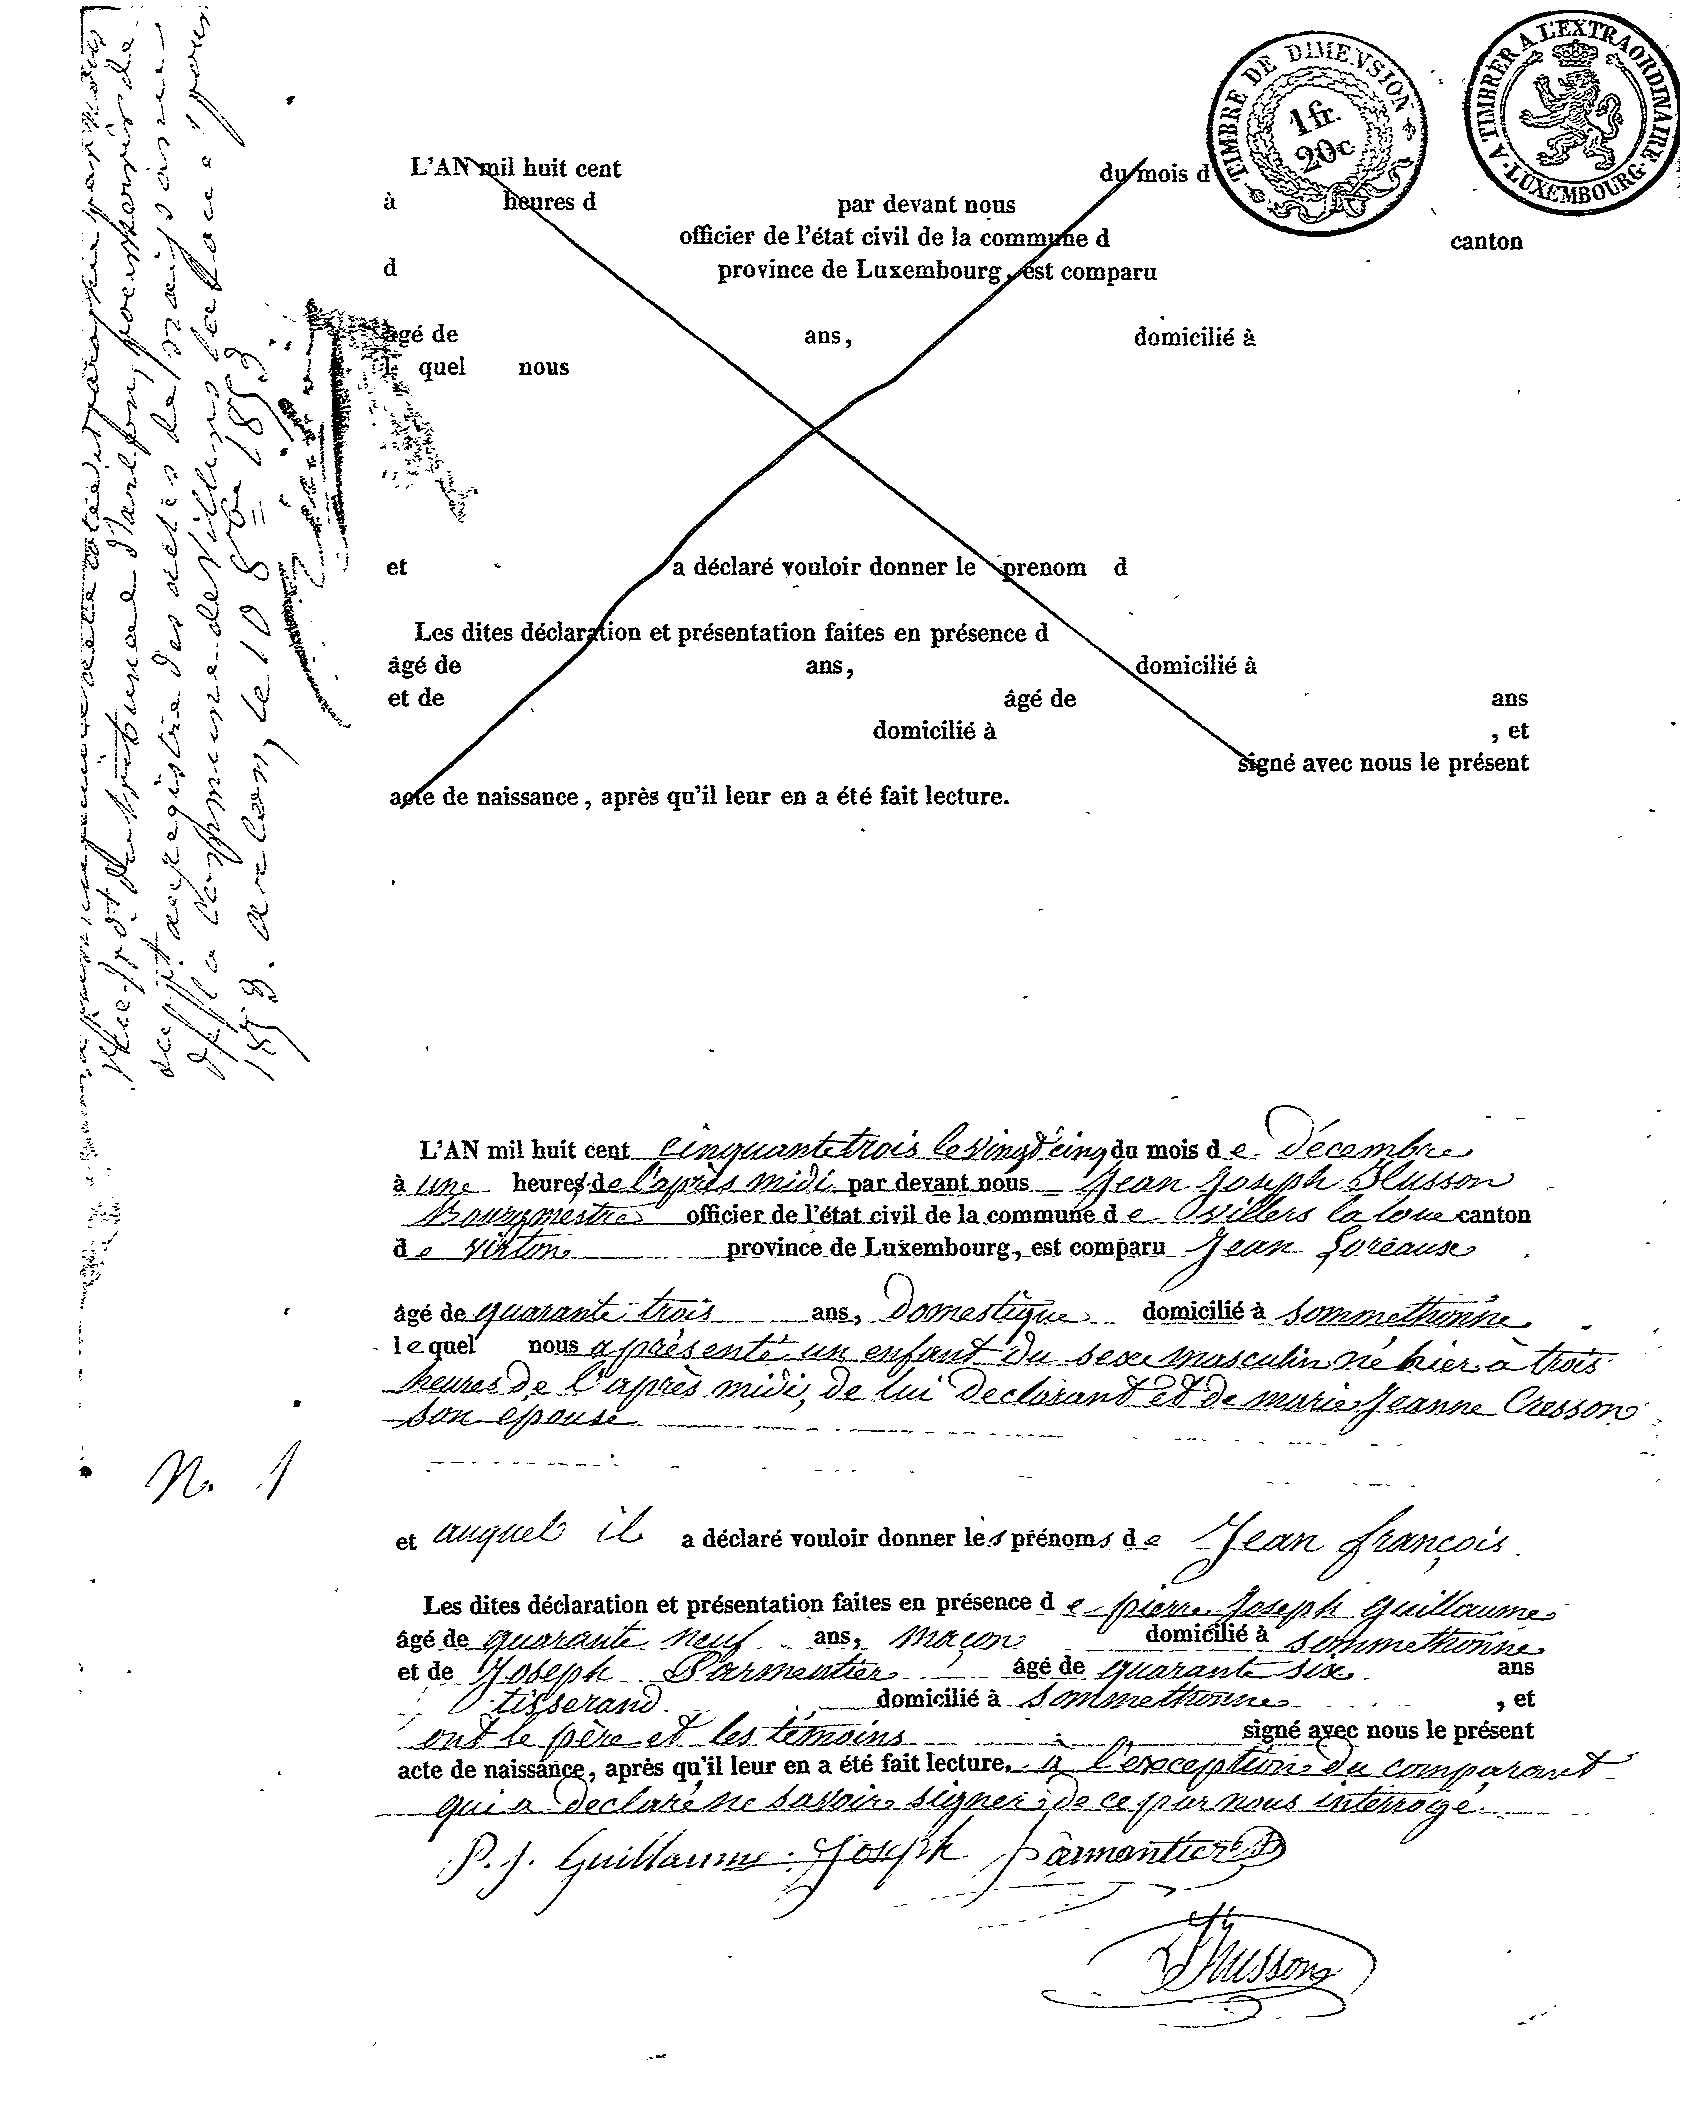 TIMBRE DE DIMENSION
1 fr.
20 c
A TIMBRER A L'EXTRAORDINAIRE
LUXEMBOURG
L'AN mil huit cent du mois d
à heures d par devant nous
officier de l'état civil de la commune d canton
d province de Luxembourg, est comparu
âgé de ans, domicilié à
l quel nous
et a déclaré vouloir donner le prenom d
Les dites déclaration et présentation faites en présence d
âgé de ans, domicilié à
et de âgé de ans
domicilié à , et
signé avec nous le présent
acte de naissance, après qu'il leur en a été fait lecture.
du tribunal d'arlon, pour servir de
registre des actes de naissance
de la commune de Villers la loue pour
185 . arlon, le 10 8bre 1853
L'AN mil huit cent cinquante trois le vingt cinq du mois de décembre
à une heures de l'après midi par devant nous Jean Joseph Husson
Bourgmestre officier de l'état civil de la commune de villers la loue canton
de virton province de Luxembourg, est comparu Jean Loreaux
âgé de quarante trois ans, Domestique domicilié à sommethonne
le quel nous a présenté un enfant du sexe masculin né hier à trois
heures de l'après midi, de lui declarant et de marie Jeanne Cresson
son épouse
N. 1
et auquel il a déclaré vouloir donner les prénoms de Jean françois
Les dites déclaration et présentation faites en présence de pierre Joseph guillaume
âgé de quarante neuf ans, maçon domicilié à sommethonne
et de Joseph Parmentier âgé de quarante six ans
tisserand domicilié à sommethonne , et
ont le père et les témoins signé avec nous le présent
acte de naissance, après qu'il leur en a été fait lecture. à l'exception du comparant
qui a declaré ne savoir signer de ce par nous interrogé
P. J. Guillaume Joseph parmantier
Husson